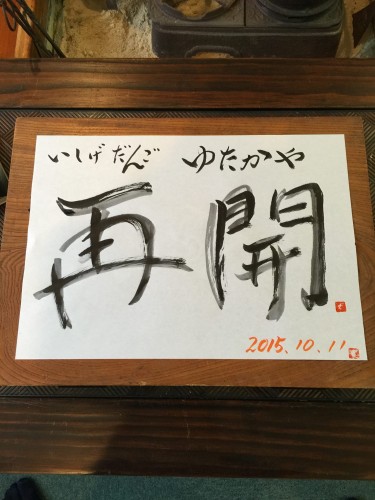 いしげだんご ゆたかや
再開
2015.10.11